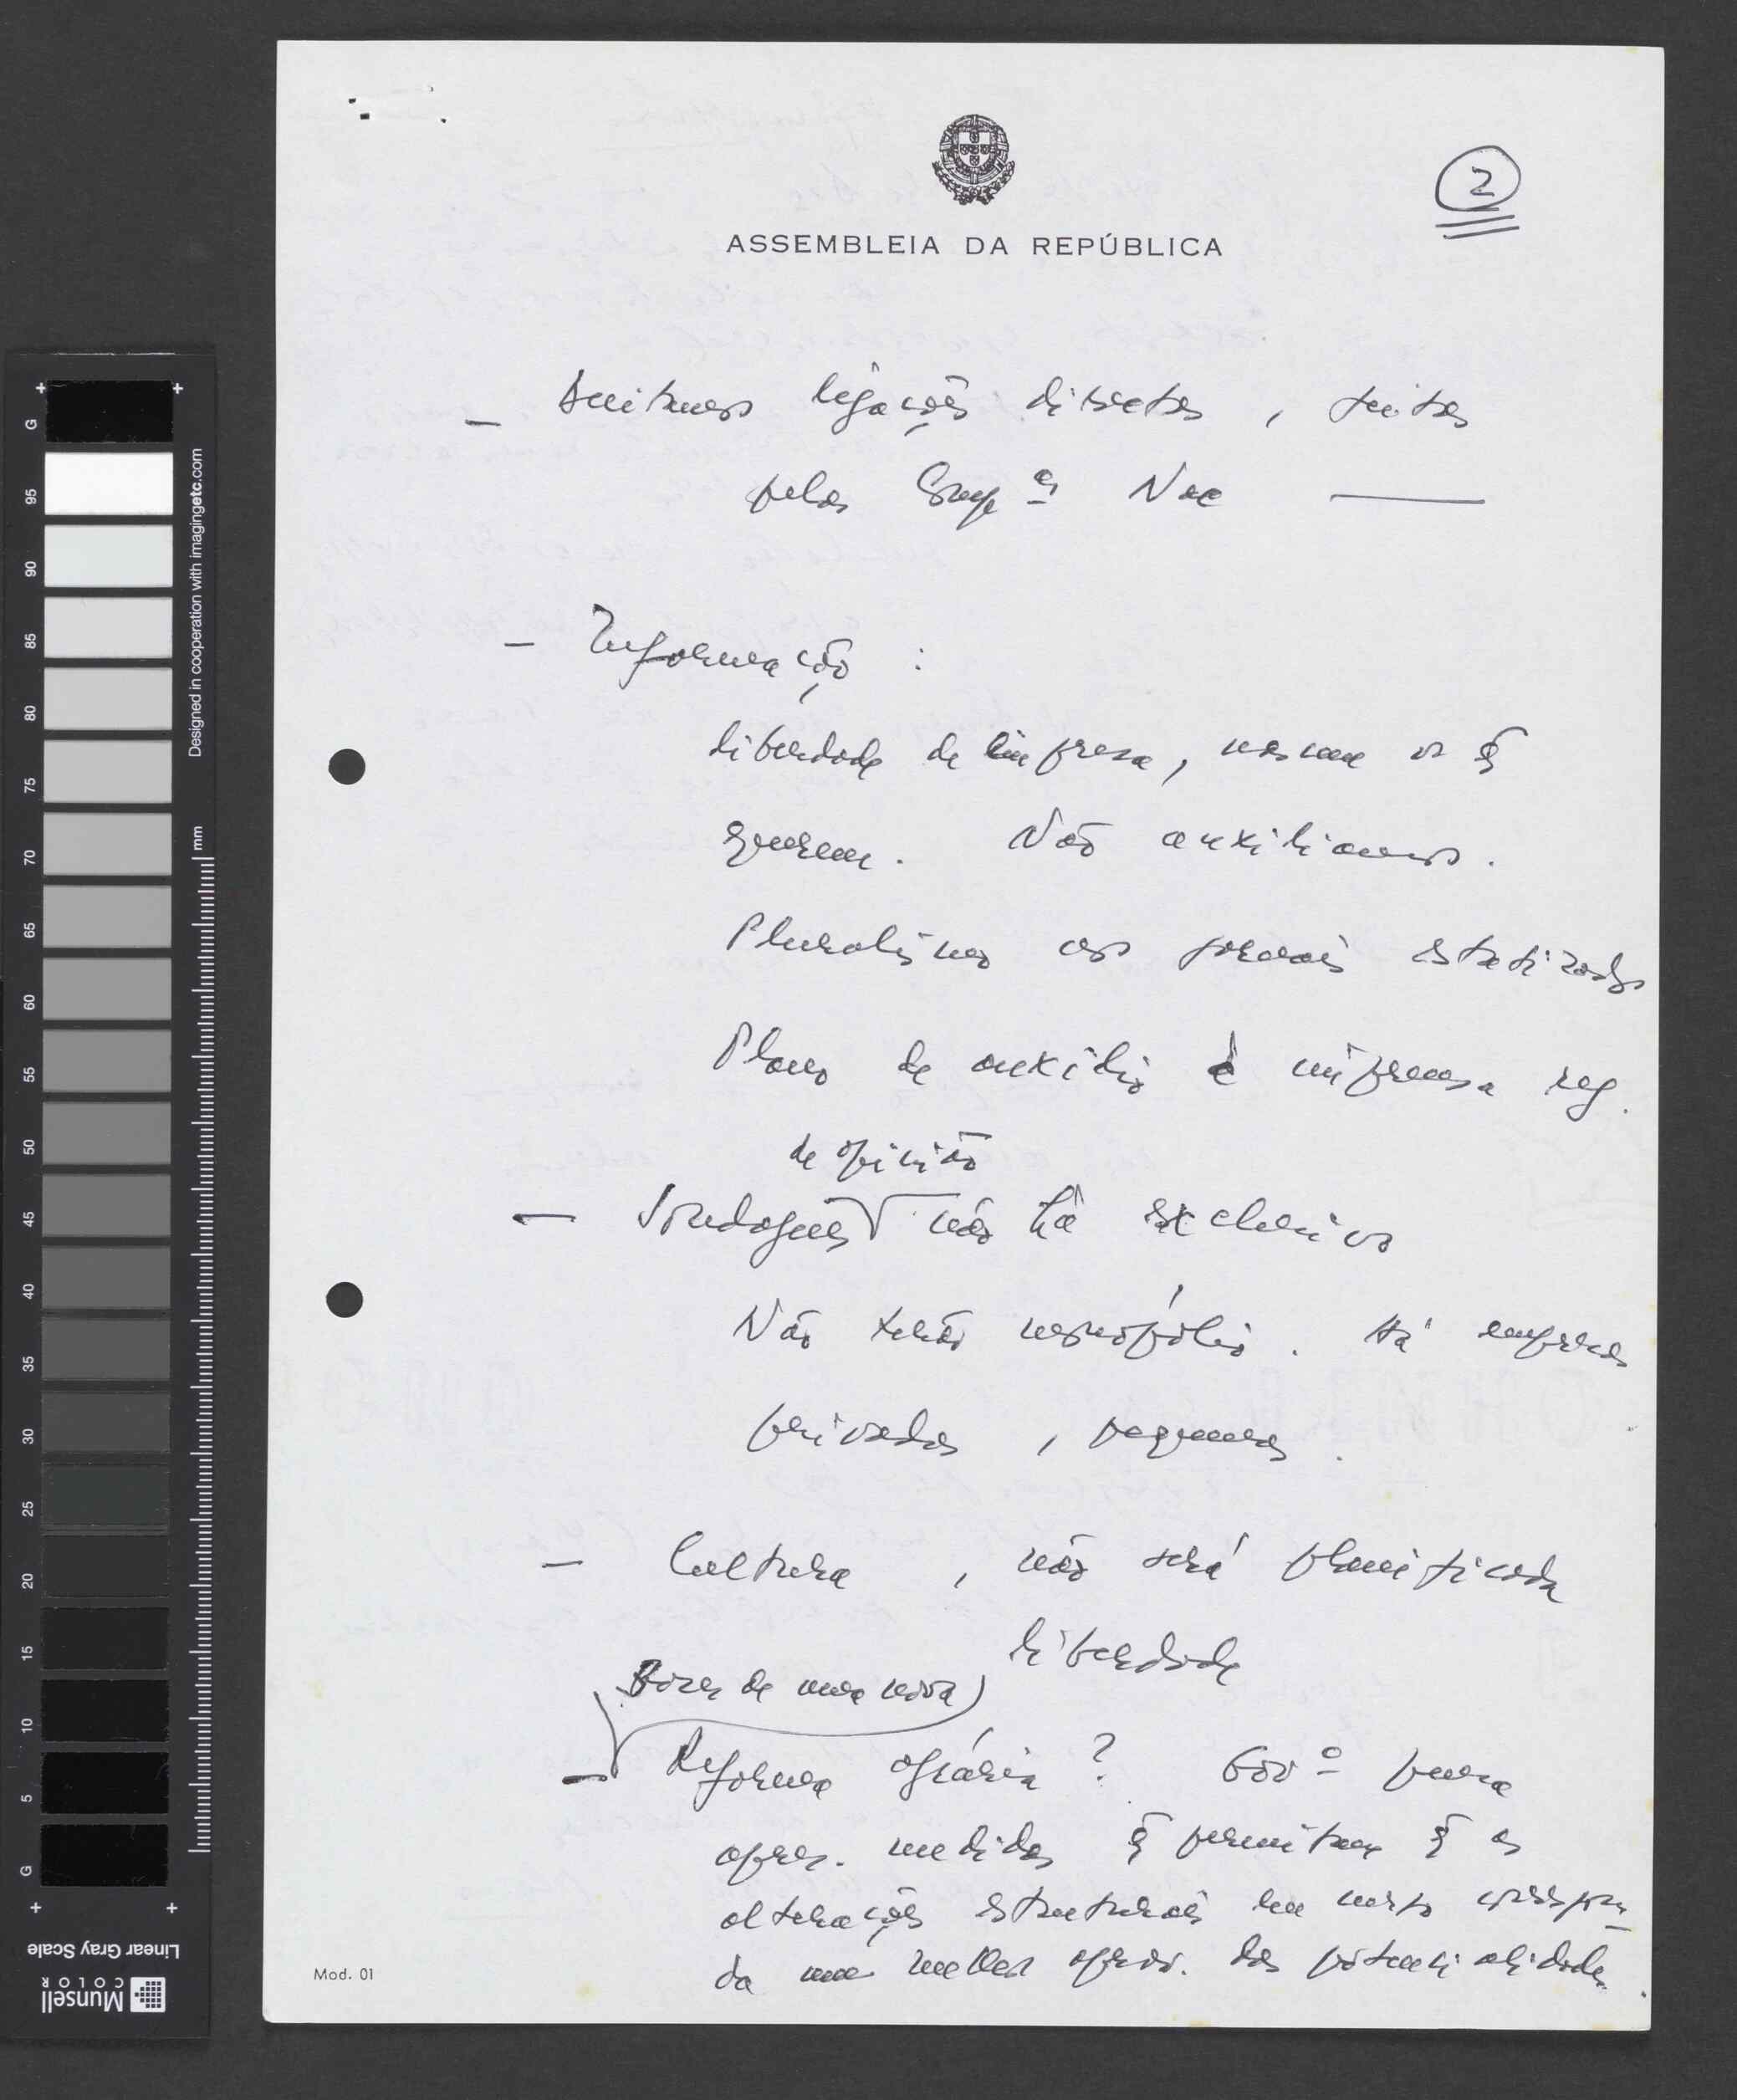 2
ASSEMBLEIA DA REPÚBLICA
— ligações directas, feitas
pelas Empªs Nac
— Informação :
liberdade de imprensa, mesmo os q̃
querem. Não auxiliamos.
Pluralismo nos jornais estatizados
Plano de auxílio à imprensa reg.
de opinião
— Sondagens não há exclusivo
Não terão monopólio. Há empresas
privadas, pequenas.
— Cultura, não será planificada
liberdade
Bases de uma nova
— Reforma agrária ? Govº
apres. medidas q̃ permitam q̃ as
alterações estruturais
da uma melhor aprov. das potencialidades.
Mod. 01
G
95
90
85
80
75
70
65
60
55
50
45
40
35
30
25
20
15
10
5
G
mm
Designed in cooperation with imagingetc.com
Linear Gray Scale
Munsell
COLOR